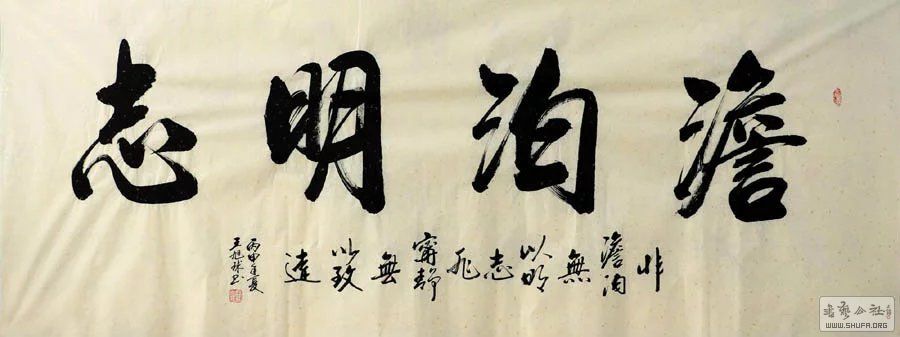 澹泊明志
非
澹泊
無
以明
志
非
寧靜
無
以致
遠
丙申年夏
王旭球书
书艺公社
WWW.SHUFA.ORG